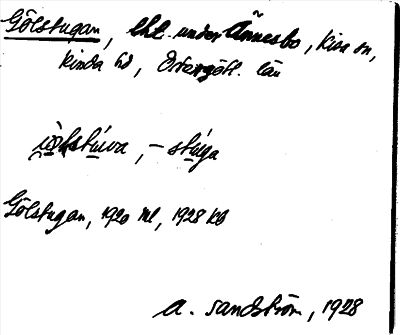 Gölstugan, lht. under Ånnesbo, Kisa sn,
Kinda hd, Östergötl. län
jö̀lstúva, - stúga
Gölstugan, 1920 ml, 1928 kb
A. Sandström, 1928